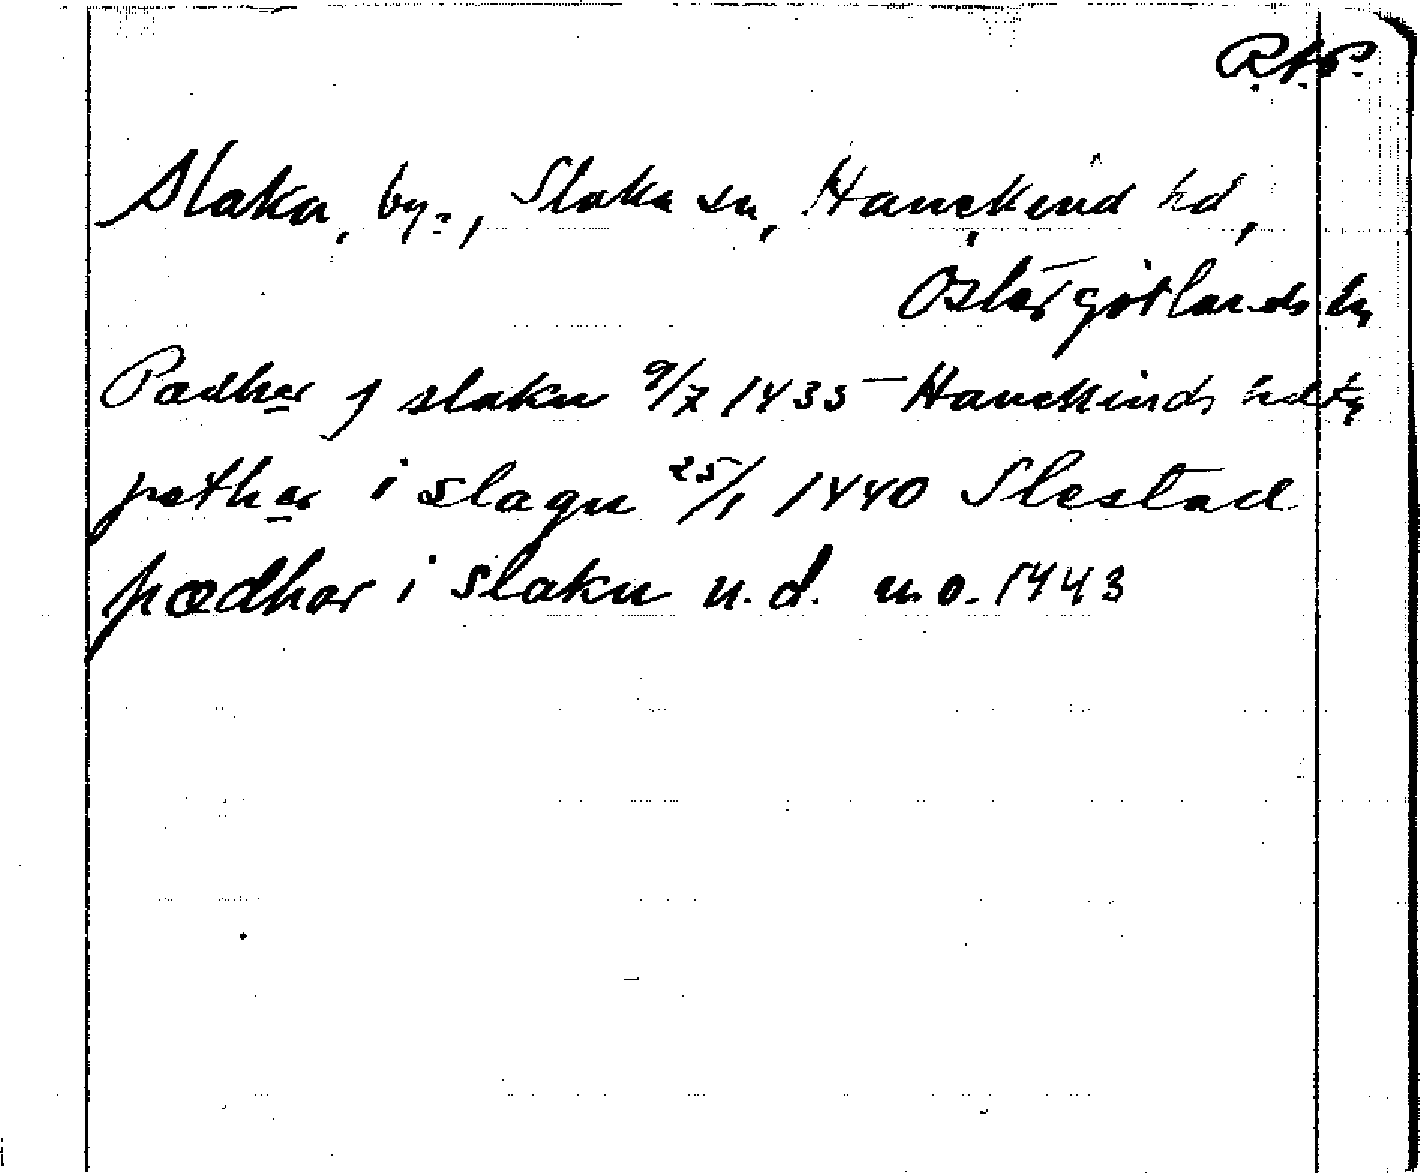 R.A.P.
Slaka, by., Slaka sn, Hanekind hd,
Östergötlands ln
Pædher j slaku 9/7 1435 Hanekinds hdtg
pether i slagu 25/1 1440 Slestad
pædhar i slaku u.d. u.o. 1443